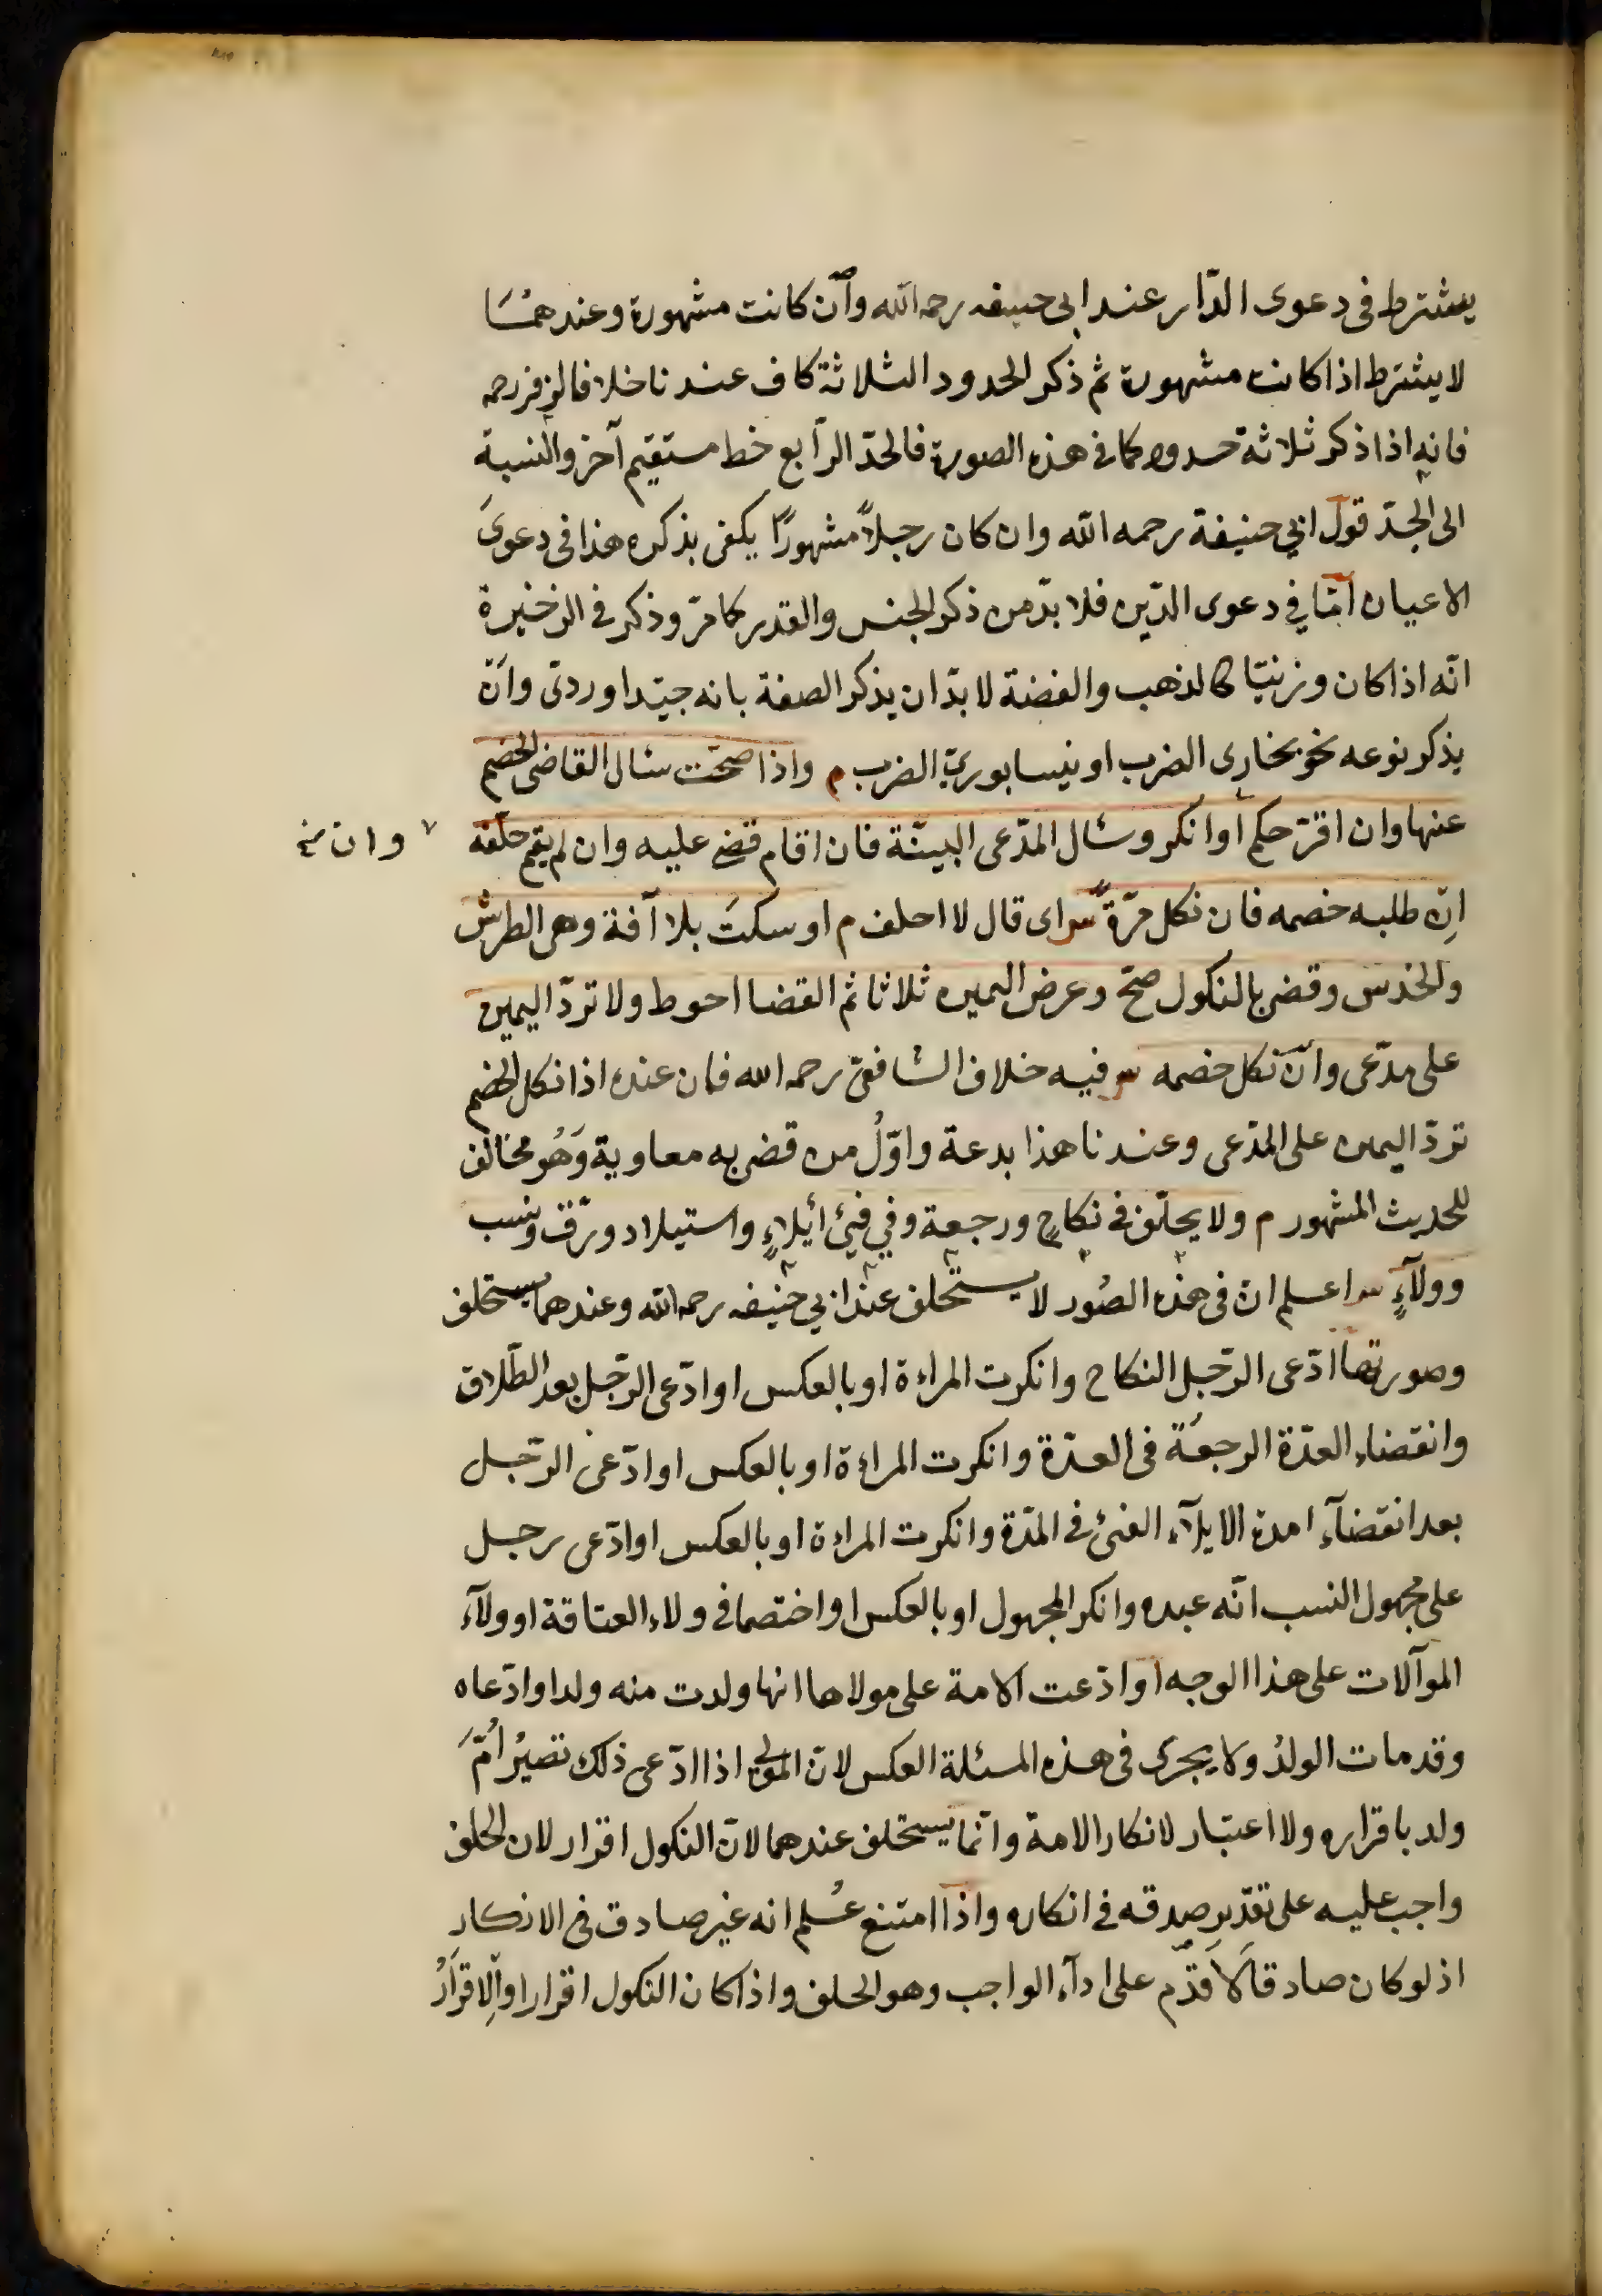 يشترط فى دعوى الدّار عند ابى حنيفه رحمه الله وآن كانت مشهورة وعندهمَا
لا يشترط اذا كانت مشهورة ثم ذكر الحدود الثلاثة كاف عند ناخلا فالزفر رحمه
فانه اذا ذكر ثلاثة حدود كما فى هذه الصورة فالحدّ الرّابع خط مستقيم آخر والنسبة
الى الجدّ قول ابي حنيفة رحمه الله وان كان رجلاً مشهورًا يكفى بذكره هذا فى دعوىَ
الاعيان امّا في دعوى الدّين فلا بدّ من ذكر الجنس والقدر كما مرّ وذكر فى الذخيرة
انّه اذا كان وزنيّا كالذهب والفضة لا بدّ ان يذكر الصفة بانه جيّد او ردىّ وانّ
يذكر نوعه نحو بخارى الضرب او نيسابوريّ الضرب م واذا صحّت سئال القاضى الخصم
عنها وان اقرّ حكم او انكر وسئال المدّعى البيّنة فان اقام قضى عليه وان لم يقم حلّفه
وان نخ
اِنّ طلبه خصمه فان نكل مرّةً س اى قال لا احلف م او سكتَ بلا آفة وهى الطرش
والخرس وقضى بالنكول صحّ وعرض اليمين ثلاثا ثم القضا احوط ولا تردّ اليمين
على مدّعى وانّ نكل خصمه س فيه خلاف الشافعىّ رحمه الله فان عنده اذا نكل الخصم
تردّ اليمين على المدّعى وعندنا هذا بدعة واوّلُ من قضى به معاوية وَهُو مخالف
للحديث المشهور م ولا يحلّف فى نكاحٍ ورجعة وفي فيئ ائيلاءٍ واستيلاد ورّق ونسب
وولآءٍ س اعلم ان فى هذه الصُور لا يستحلف عند ابي حنيفه رحمه الله وعندهما يستحلف
وصورتها ادّعى الرّجل النكاح وانكرت المراءة او بالعكس او ادّعى الرّجل بعد الطّلاق
وانقضاء العدّة الرجعَة فى العدّة وانكرت المراءة او بالعكس او ادّعى الرّجل
بعد انقضآء امدة الايلآء الفئ فى المدّة وانكرت المراءة او بالعكس او ادّعى رجل
على مجهول النسب انّه عبده وانكر المجهول او بالعكس او اختصما فى ولاء العتاقة او ولآء
الموآلات على هذا الوجه او ادّعت الامة على مولاها انها ولدت منه ولدا وادّعاه
وقد مات الولدُ ولا يجرى فى هذه المسئلة العكس لانّ المولى اذا ادّعى ذلك تصيرُ اُمّ
ولد باقراره ولا اعتبار لانكار الامة وانّما يستحلف عندهما لانّ النكول اقرار لان الحلف
واجب عليه على تقدّيرِ صدقه فى انكاره واذا امتنع عُلم انه غير صادق فى الانكار
اذ لو كان صادقا لاَقدّم على ادآء الواجب وهو الحلف واذا كان النكول اقرارا والِاقرارُ